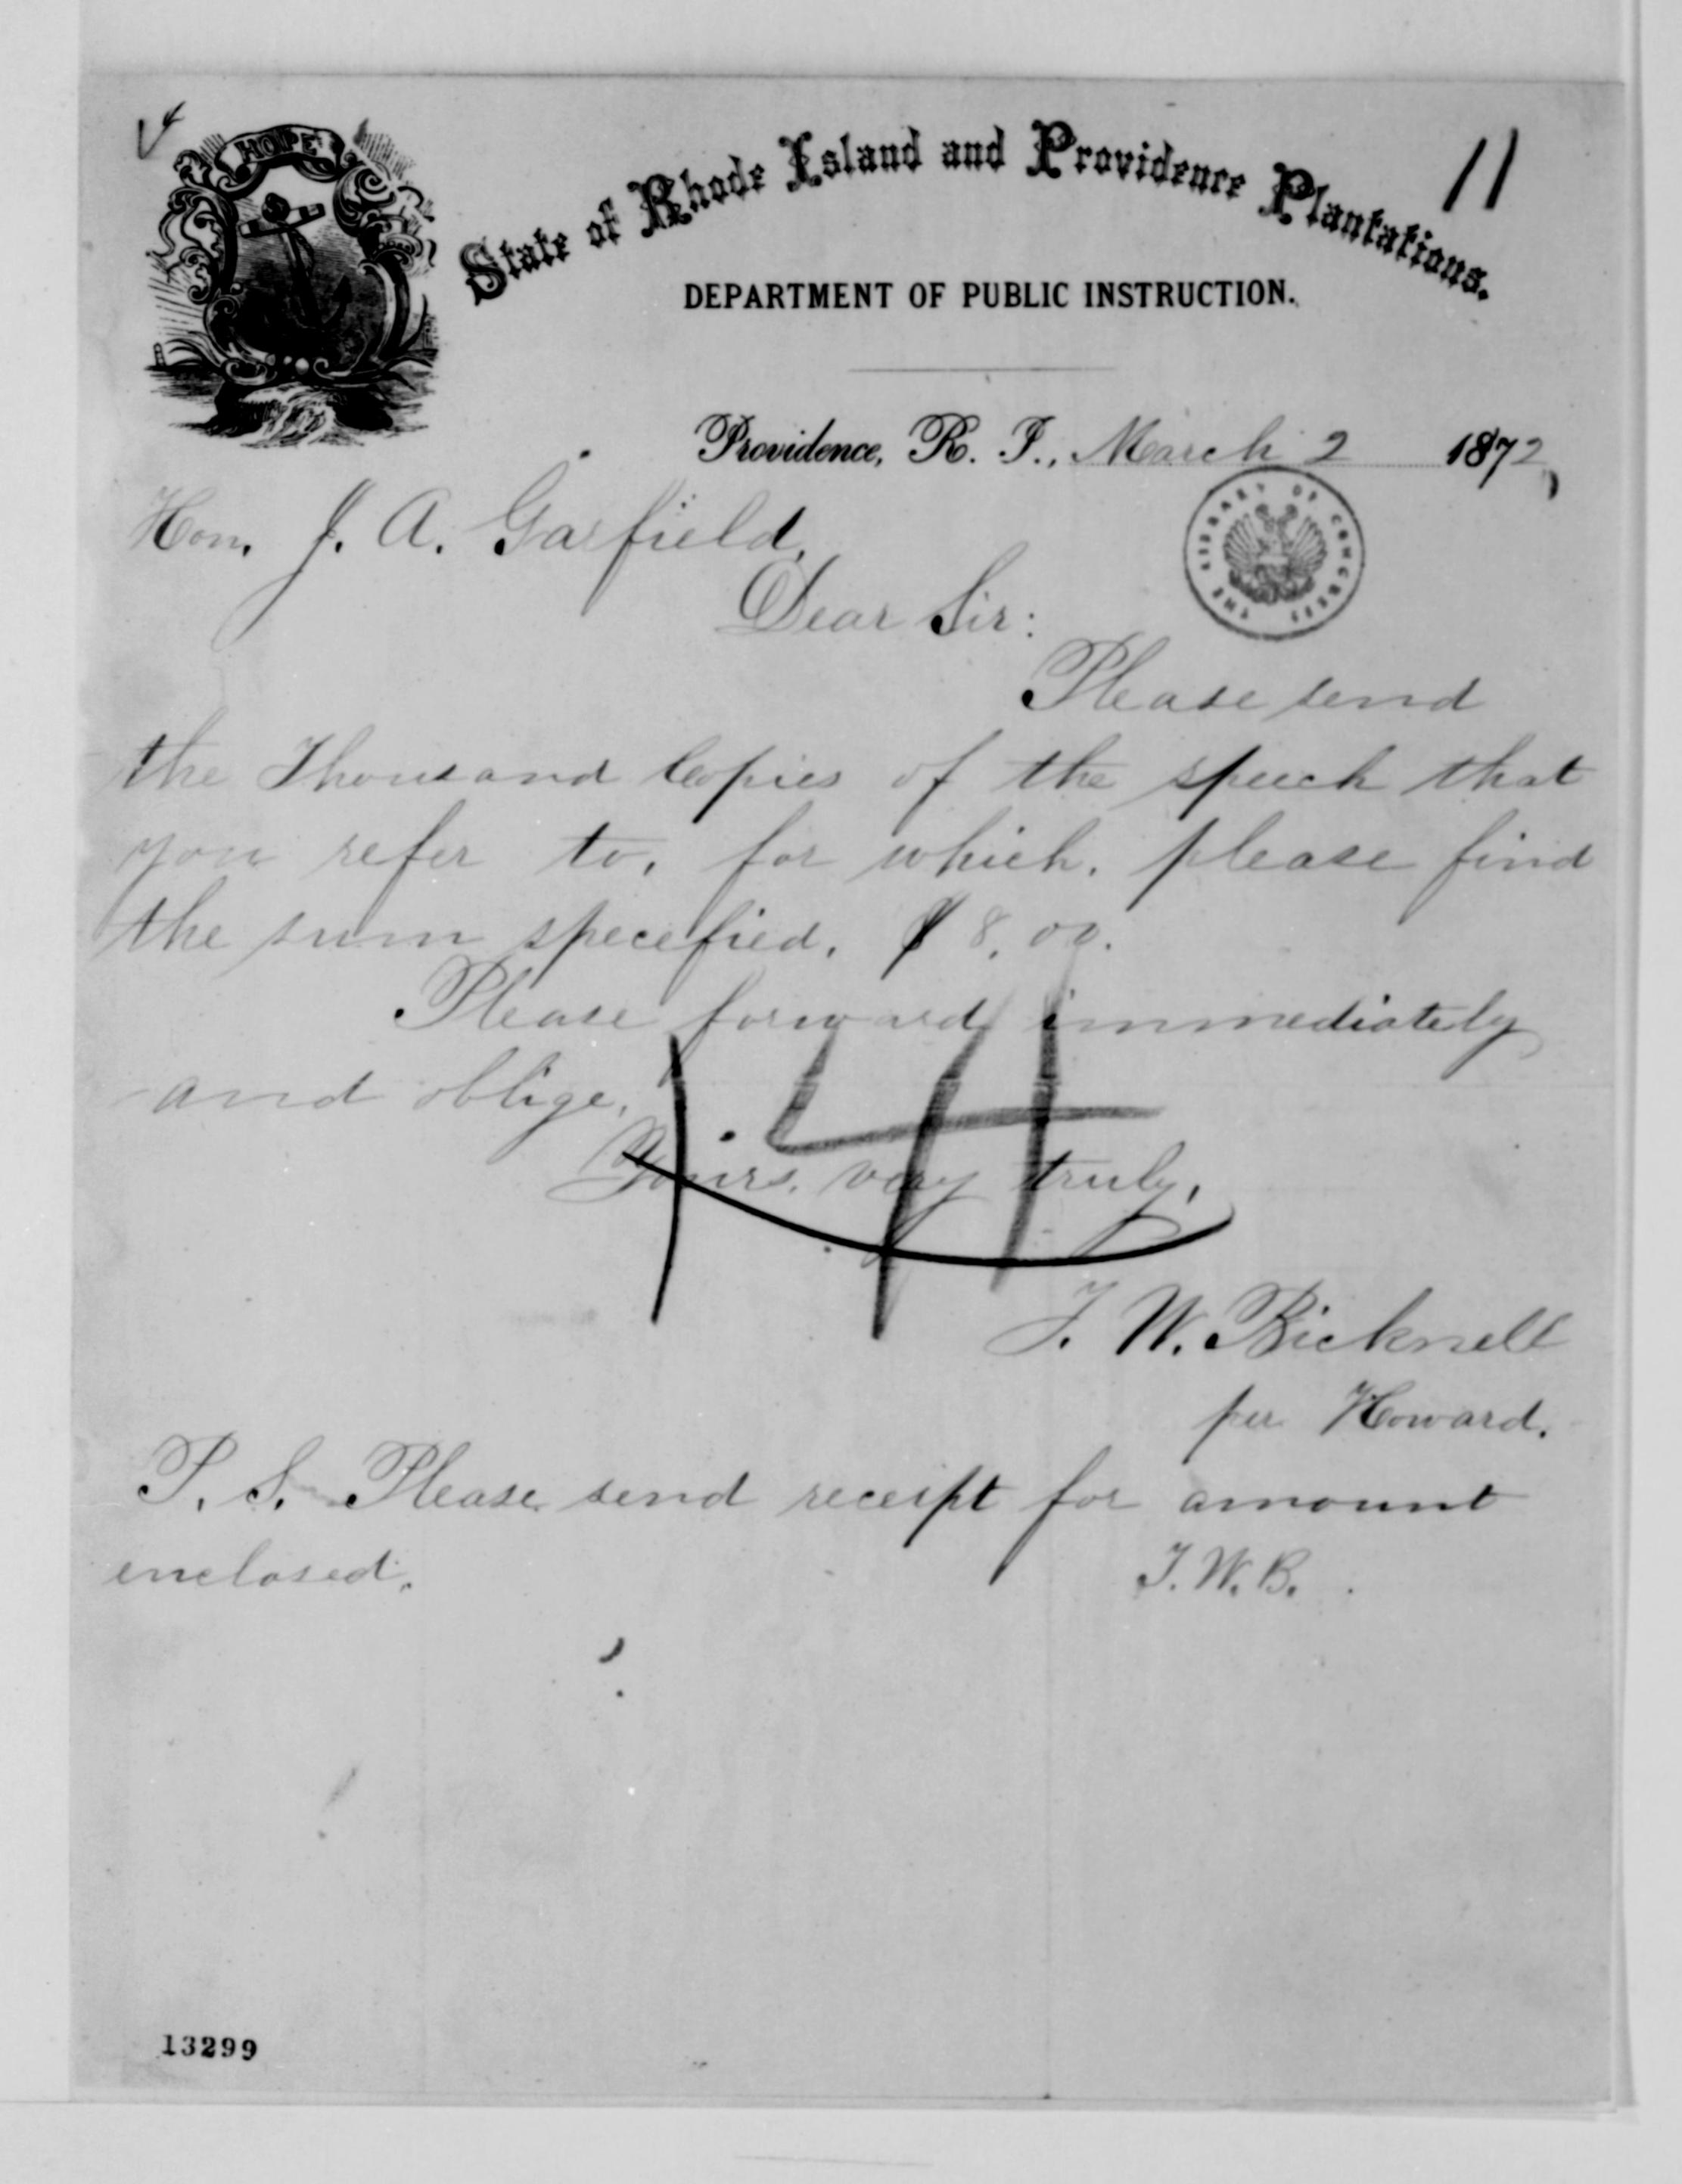 V4
HOPE
State of Rhode Island and Providence Plantations.
11
DEPARTMENT OF PUBLIC INSTRUCTION.
Providence, R. I., March 2 1872,
THE LIBRARY OF CONGRESS
Hon. J. A. Garfield,
Dear Sir:
Please send
the Thousand Copies of the speech that
you refer to, for which, please find
the sum specefied, $8.00.
Please forward immediately
and oblige,
Yours, very truly,
T. W. Bicknell
per Howard.
P. S. Please send receipt for amount
enclosed.
T. W. B.
13299